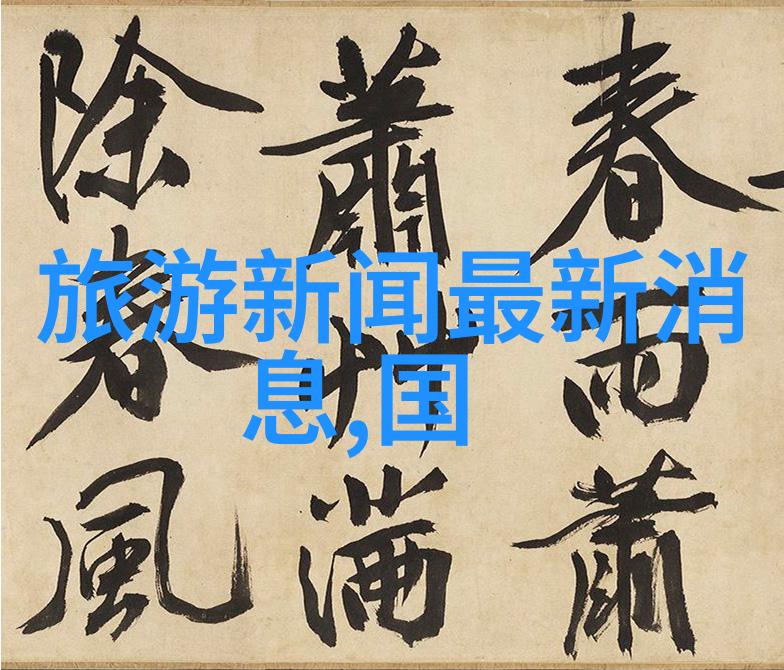 春雨蕭
蕭艸滿
除春風
旅游新闻最新消
息,国